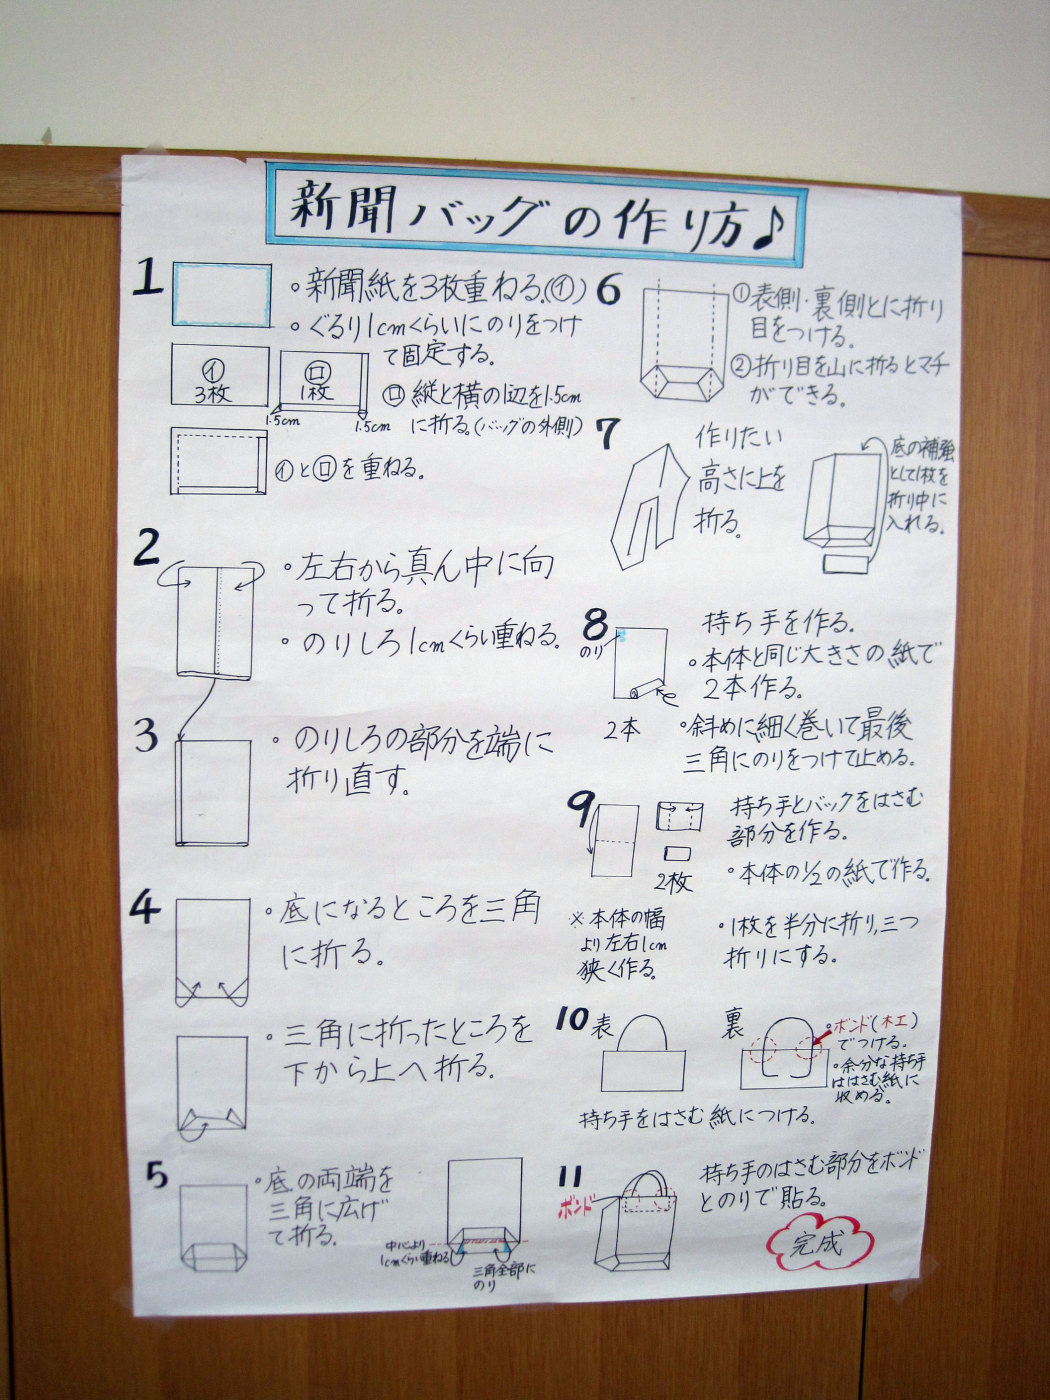 新聞バッグの作り方♪
1
・新聞紙を3枚重ねる。(イ)
・ぐるり1cmくらいにのりをつけ
て固定する。
イ
3枚
ロ
1枚
1.5cm
1.5cm
ロ 縦と横の1辺を1.5cm
に折る。(バッグの外側)
イとロを重ねる。
2
・左右から真ん中に向
って折る。
・のりしろ1cmくらい重ねる。
3
・のりしろの部分を端に
折り直す。
4
・底になるところを三角
に折る。
・三角に折ったところを
下から上へ折る。
5
・底の両端を
三角に広げ
て折る。
中心より
1cmくらい重ねる
三角全部に
のり
6
①表側・裏側とに折り
目をつける。
②折り目を山に折るとマチ
ができる。
7
作りたい
高さに上を
折る。
底の補強
として1枚を
折り中に
入れる。
8
のり
2本
持ち手を作る。
・本体と同じ大きさの紙で
2本作る。
・斜めに細く巻いて最後
三角にのりをつけて止める。
9
2枚
持ち手とバックをはさむ
部分を作る。
・本体の1/2の紙で作る。
※本体の幅
より左右1cm
狭く作る。
・1枚を半分に折り,三つ
折りにする。
10
表
裏
・ボンド(木工)
でつける。
・余分な持ち手
ははさむ紙に
収める。
持ち手をはさむ紙につける。
11
ボンド
持ち手のはさむ部分をボンド
とのりで貼る。
完成